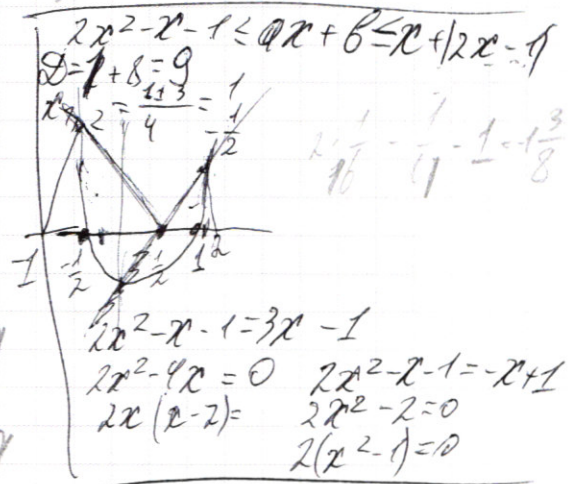 2x² - x - 1 ≤ ax + b ≤ x + |2x - 1|
D = 1 + 8 = 9
x₁,₂ = (1±3)/4 = 1
-1/2
2·1/16 - 1/4 - 1 = -1 3/8
-1 -1/2 1/2 1 2
2x² - x - 1 = 3x - 1
2x² - 4x = 0 2x² - x - 1 = -x + 1
2x(x - 2) = 2x² - 2 = 0
2(x² - 1) = 0